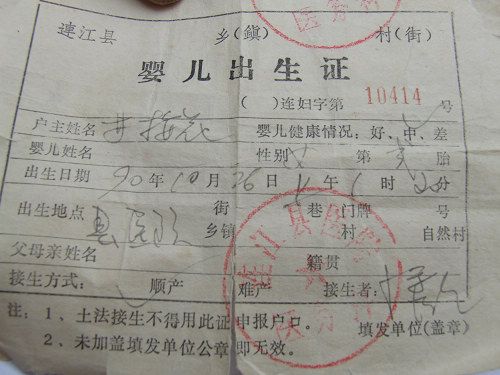 連江县 乡(鎮) 村(街)
婴儿出生证
( )连妇字第 10414 号
户主姓名 梅花 婴儿健康情况:好、中、差
婴儿姓名 性别 女 第 胎
出生日期 90 年 10 月 26 日 午 时 分
出生地点 县医院 街 巷 门牌 号
乡镇 村 自然村
父母亲姓名 籍贯
接生方式: 顺产 难产 接生者:
注:1、土法接生不得用此证申报户口。 填发单位(盖章)
2、未加盖填发单位公章即无效。
連江县医院